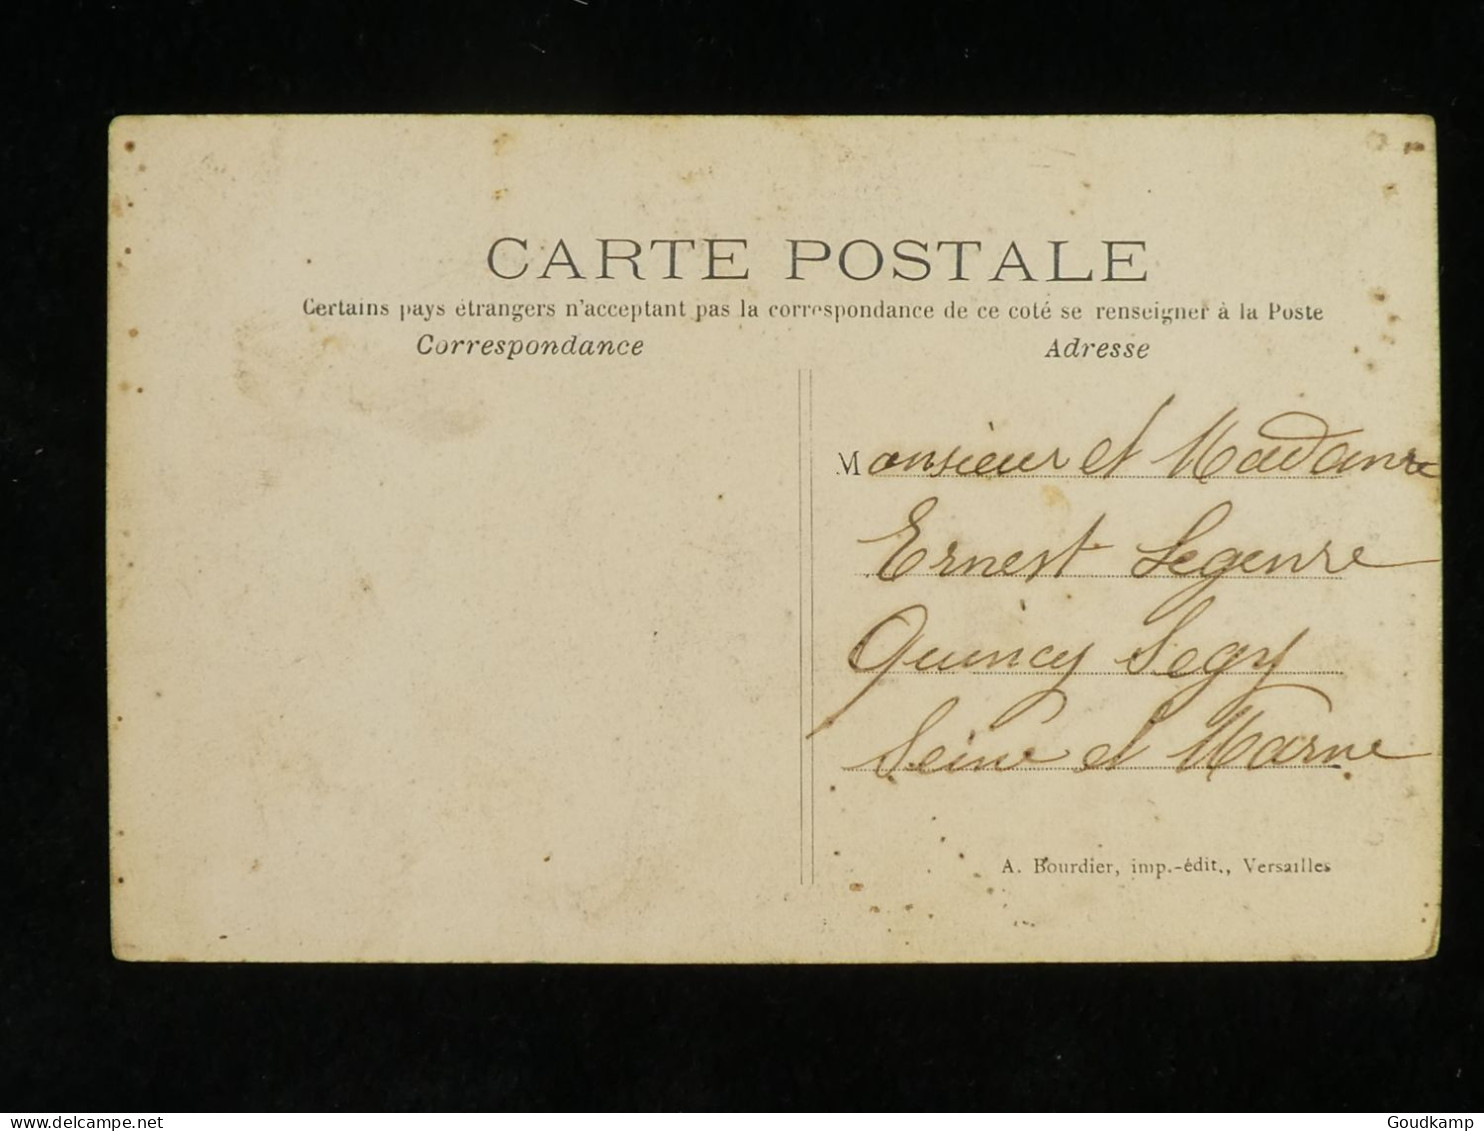 CARTE POSTALE
Certains pays étrangers n'acceptant pas la correspondance de ce coté se renseigner à la Poste
Correspondance
Adresse
Monsieur et Madame
Ernest Legenre
Quincy Segy
Seine et Marne
A. Bourdier, imp.-édit., Versailles
Goudkamp